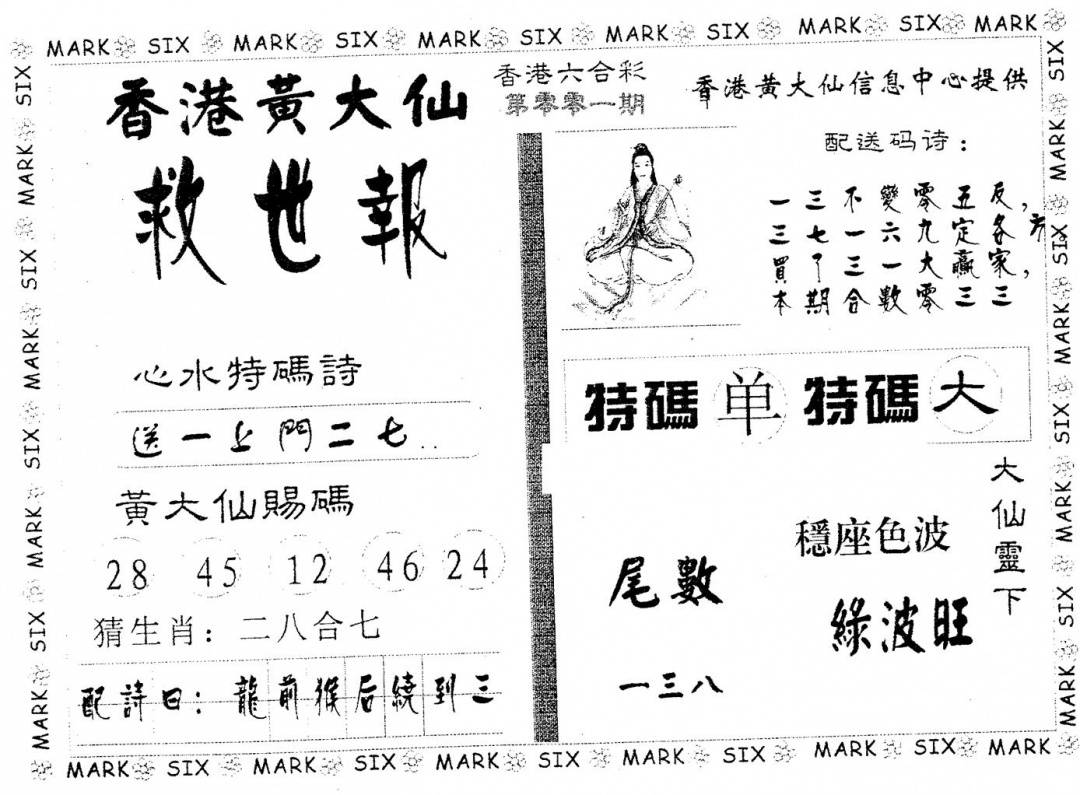 MARK SIX MARK SIX MARK SIX MARK SIX MARK SIX MARK
香港黃大仙
救世報
香港六合彩
第零零一期
香港黄大仙信息中心提供
配送码诗：
一三不變零五反，
三七一六九定各方
買了三一大贏家，
本期合數零三三
心水特碼詩
送一上門二七..
特碼 单 特碼 大
黃大仙賜碼
28 45 12 46 24
猜生肖：二八合七
配詩曰：龍前猴后繞到三
尾數
一三八
穩座色波
綠波旺
大仙靈下
MARK SIX MARK SIX MARK SIX MARK SIX
MARK SIX MARK SIX MARK SIX MARK SIX
MARK SIX MARK SIX MARK SIX MARK SIX MARK SIX MARK